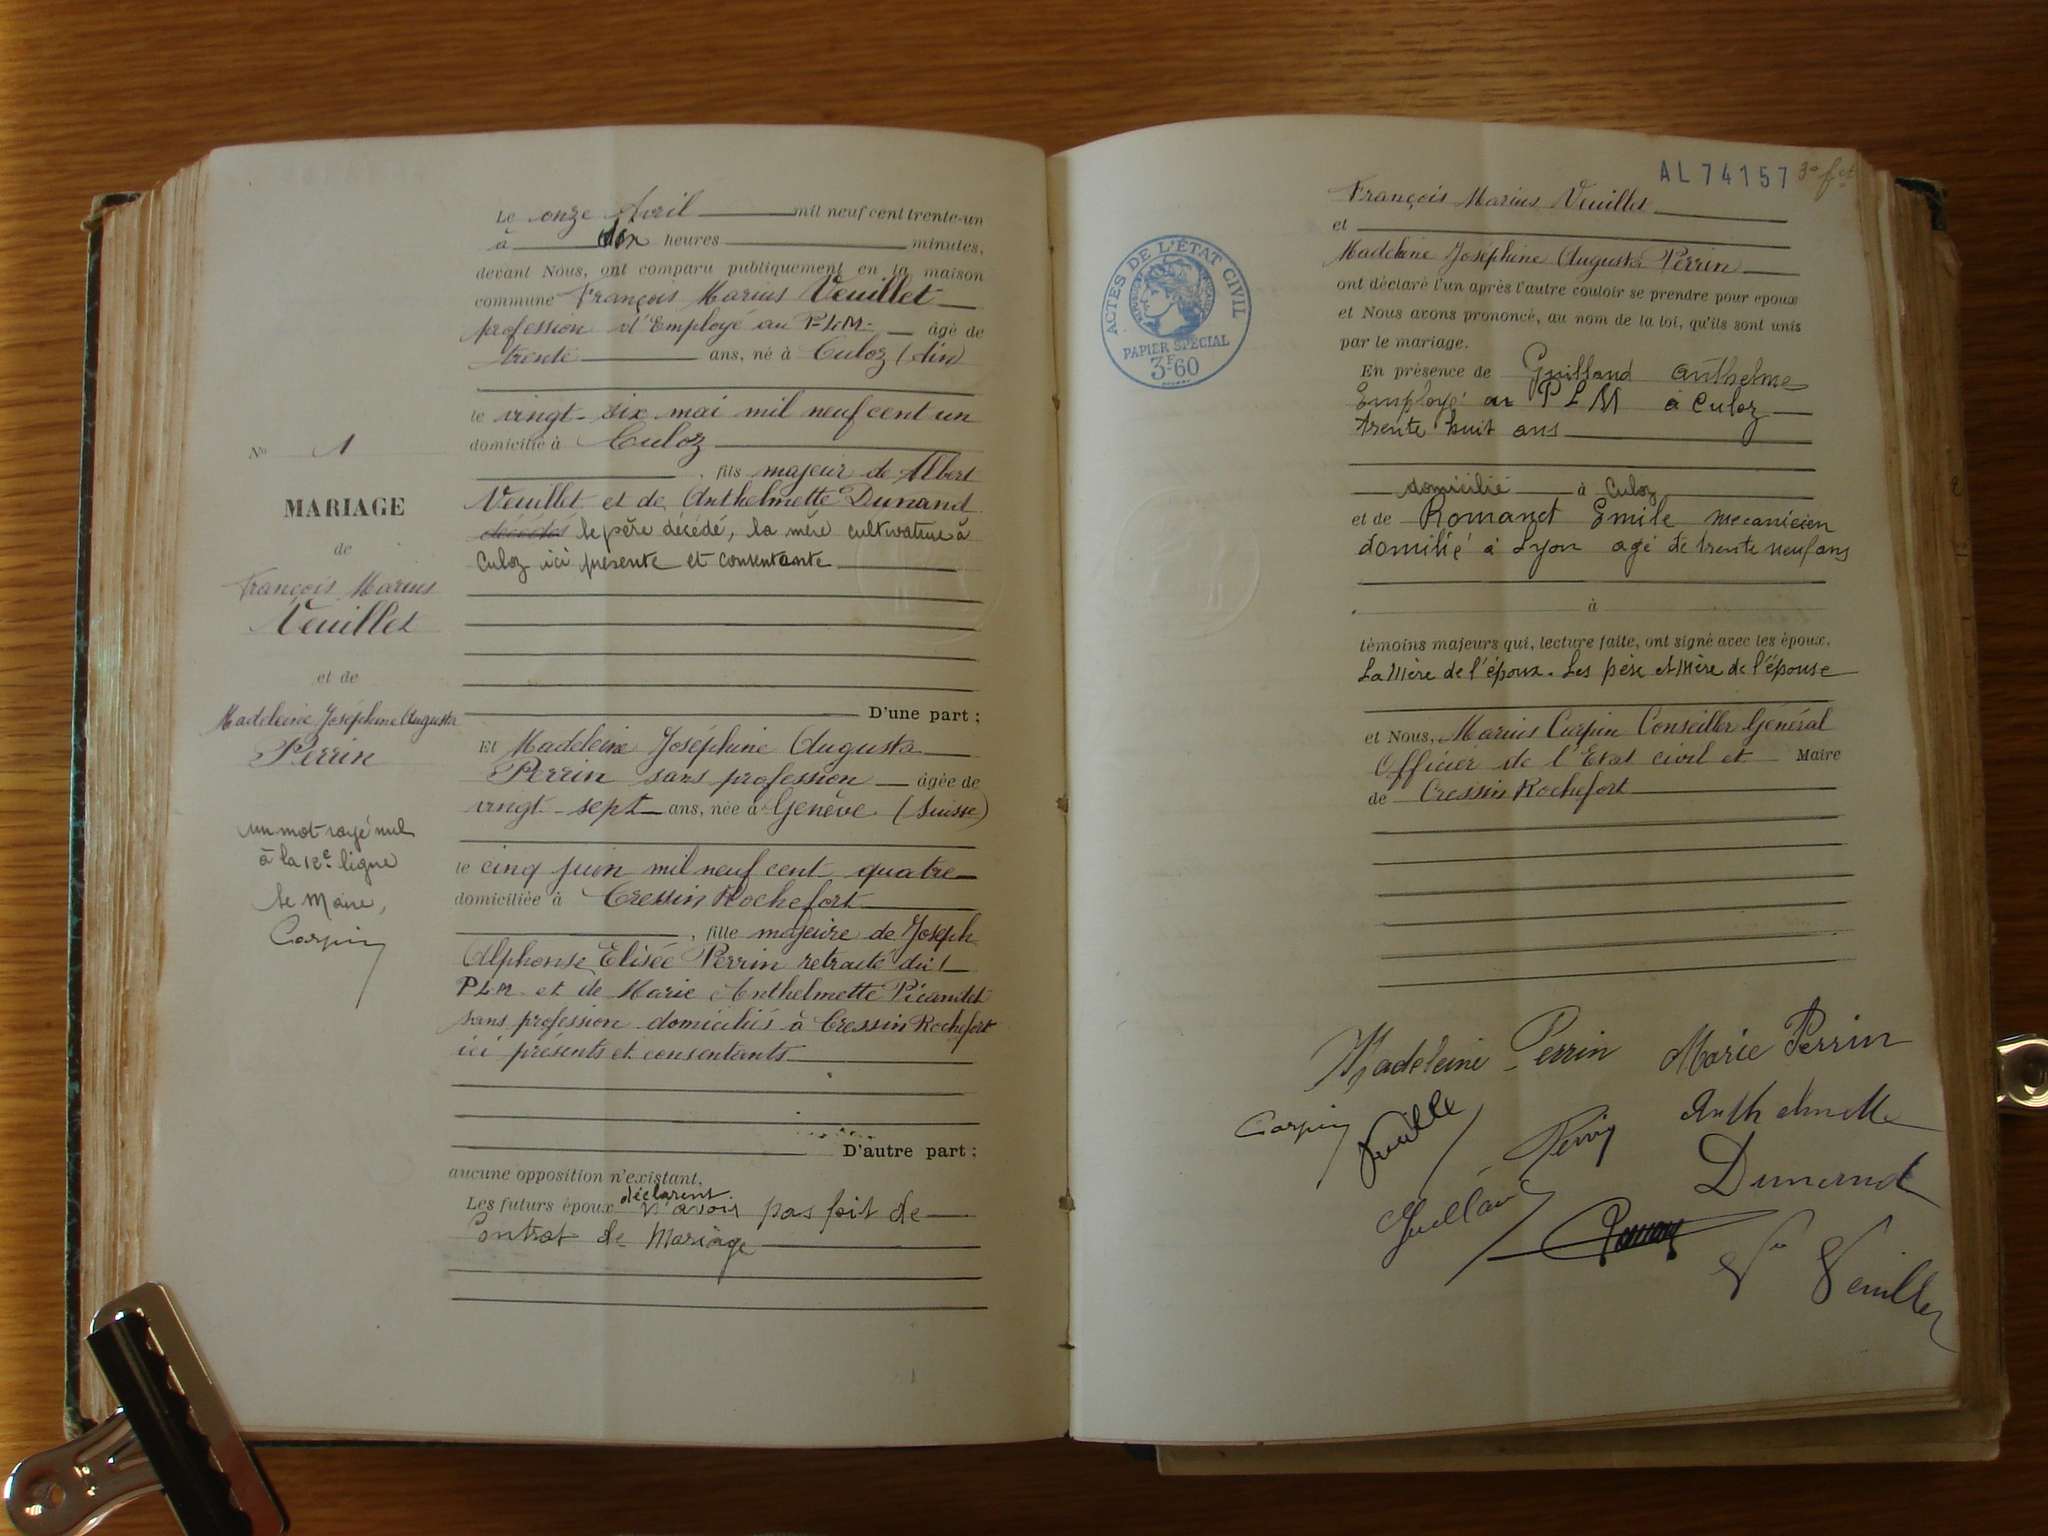 Le onze Avril mil neuf cent trente-un
à dix heures minutes,
devant Nous, ont comparu publiquement en la maison
commune François Marius Veuillet
profession d'Employé au P.L.M. âgé de
trente ans, né à Culoz (Ain)
le vingt-six mai mil neuf cent un
domicilié à Culoz
, fils majeur de Albert
Veuillet et de Anthelmette Dunand
décédés le père décédé, la mère cultivatrice à
Culoz ici présente et consentante
D'une part ;
Et Madeleine Joséphine Augusta
Perrin sans profession âgée de
vingt-sept ans, née à Genève (Suisse)
le cinq juin mil neuf cent quatre
domiciliée à Cressin Rochefort
, fille majeure de Joseph
Alphonse Elisée Perrin retraité du
P.L.M. et de Marie Anthelmette
sans profession domiciliés à Cressin Rochefort
ici présents et consentants
D'autre part ;
aucune opposition n'existant.
Les futurs époux déclarent n'avoir pas fait de
Contrat de Mariage
No 1
MARIAGE
de
François Marius
Veuillet
et de
Madeleine Joséphine Augusta
Perrin
un mot rayé nul
à la 12e ligne
Le Maire,
Carpin
AL 74157 3e fet
François Marius Veuillet
et
Madeleine Joséphine Augusta Perrin
ont déclaré l'un après l'autre vouloir se prendre pour époux
et Nous avons prononcé, au nom de la loi, qu'ils sont unis
par le mariage.
En présence de Guilland Anthelme
Employé au P L M à Culoz
trente huit ans
domicilié à Culoz
et de Romanet Emile mecanicien
domilié à Lyon agé de trente neuf ans
à
témoins majeurs qui, lecture faite, ont signé avec les époux.
La Mère de l'époux. Les père et Mère de l'épouse
et Nous, Marius Carpin Conseiller Général
Officier de l'Etat civil et Maire
de Cressin Rochefort
ACTES DE L'ÉTAT CIVIL
PAPIER SPÉCIAL
3F60
Madeleine Perrin Marie Perrin
Carpin Veuillet Perrin Anthelmette
Dunand
Guilland Romanet
Ve Veuillet